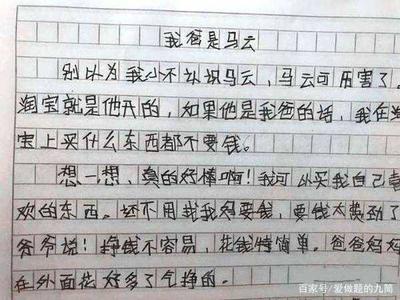 我爸是马云
别以为我小不认识马云，马云可厉害了。
淘宝就是他开的，如果他是我爸的话，我在淘
宝上买什么东西都不要钱。
想一想、真的好棒啊！我可以买我自己喜
欢的东西。还不用找我妈要钱，要钱太费劲了
爷爷说！挣钱不容易，花钱特简单。爸爸妈妈
在外面花好多了气挣的。
百家号/爱做题的九简